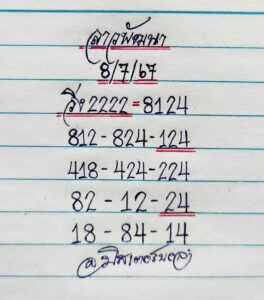 ลาวพัฒนา
8/7/67
วิ่ง2222=8124
812-824-124
418-424-224
82-12-24
18-84-14